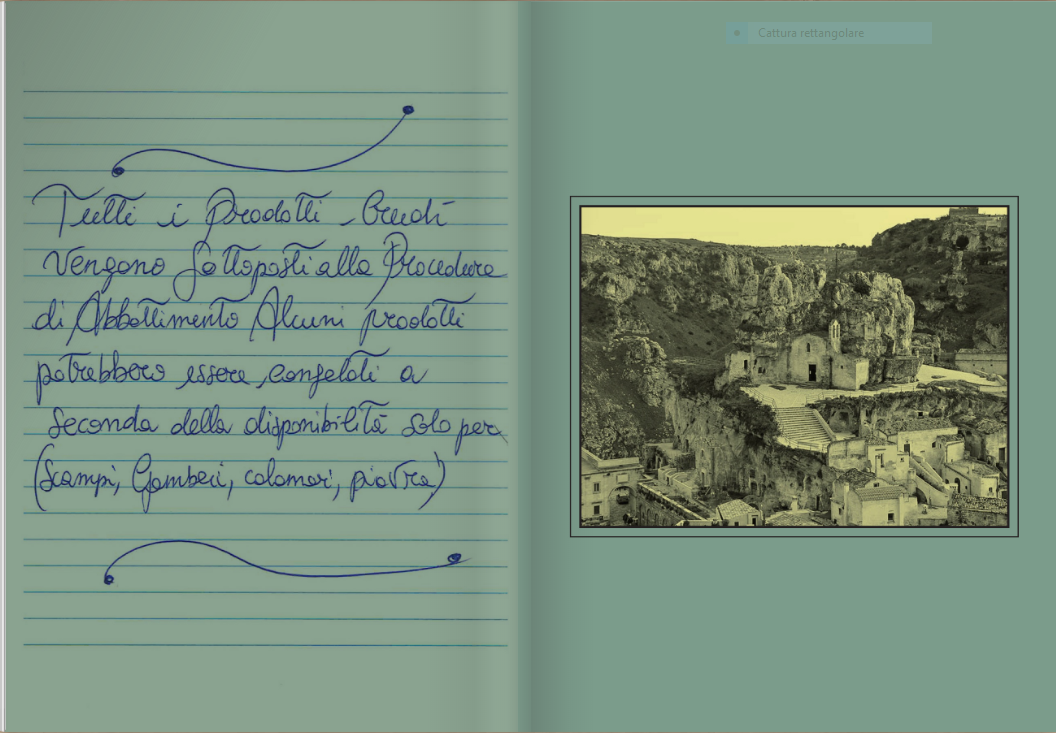 Cattura rettangolare
Tutti i Prodotti Crudi
Vengono Sottoposti alla Procedura
di Abbattimento Alcuni prodotti
potrebbero essere congelati a
Seconda della disponibilità solo per
(Scampi, Gamberi, calamari, piovra)